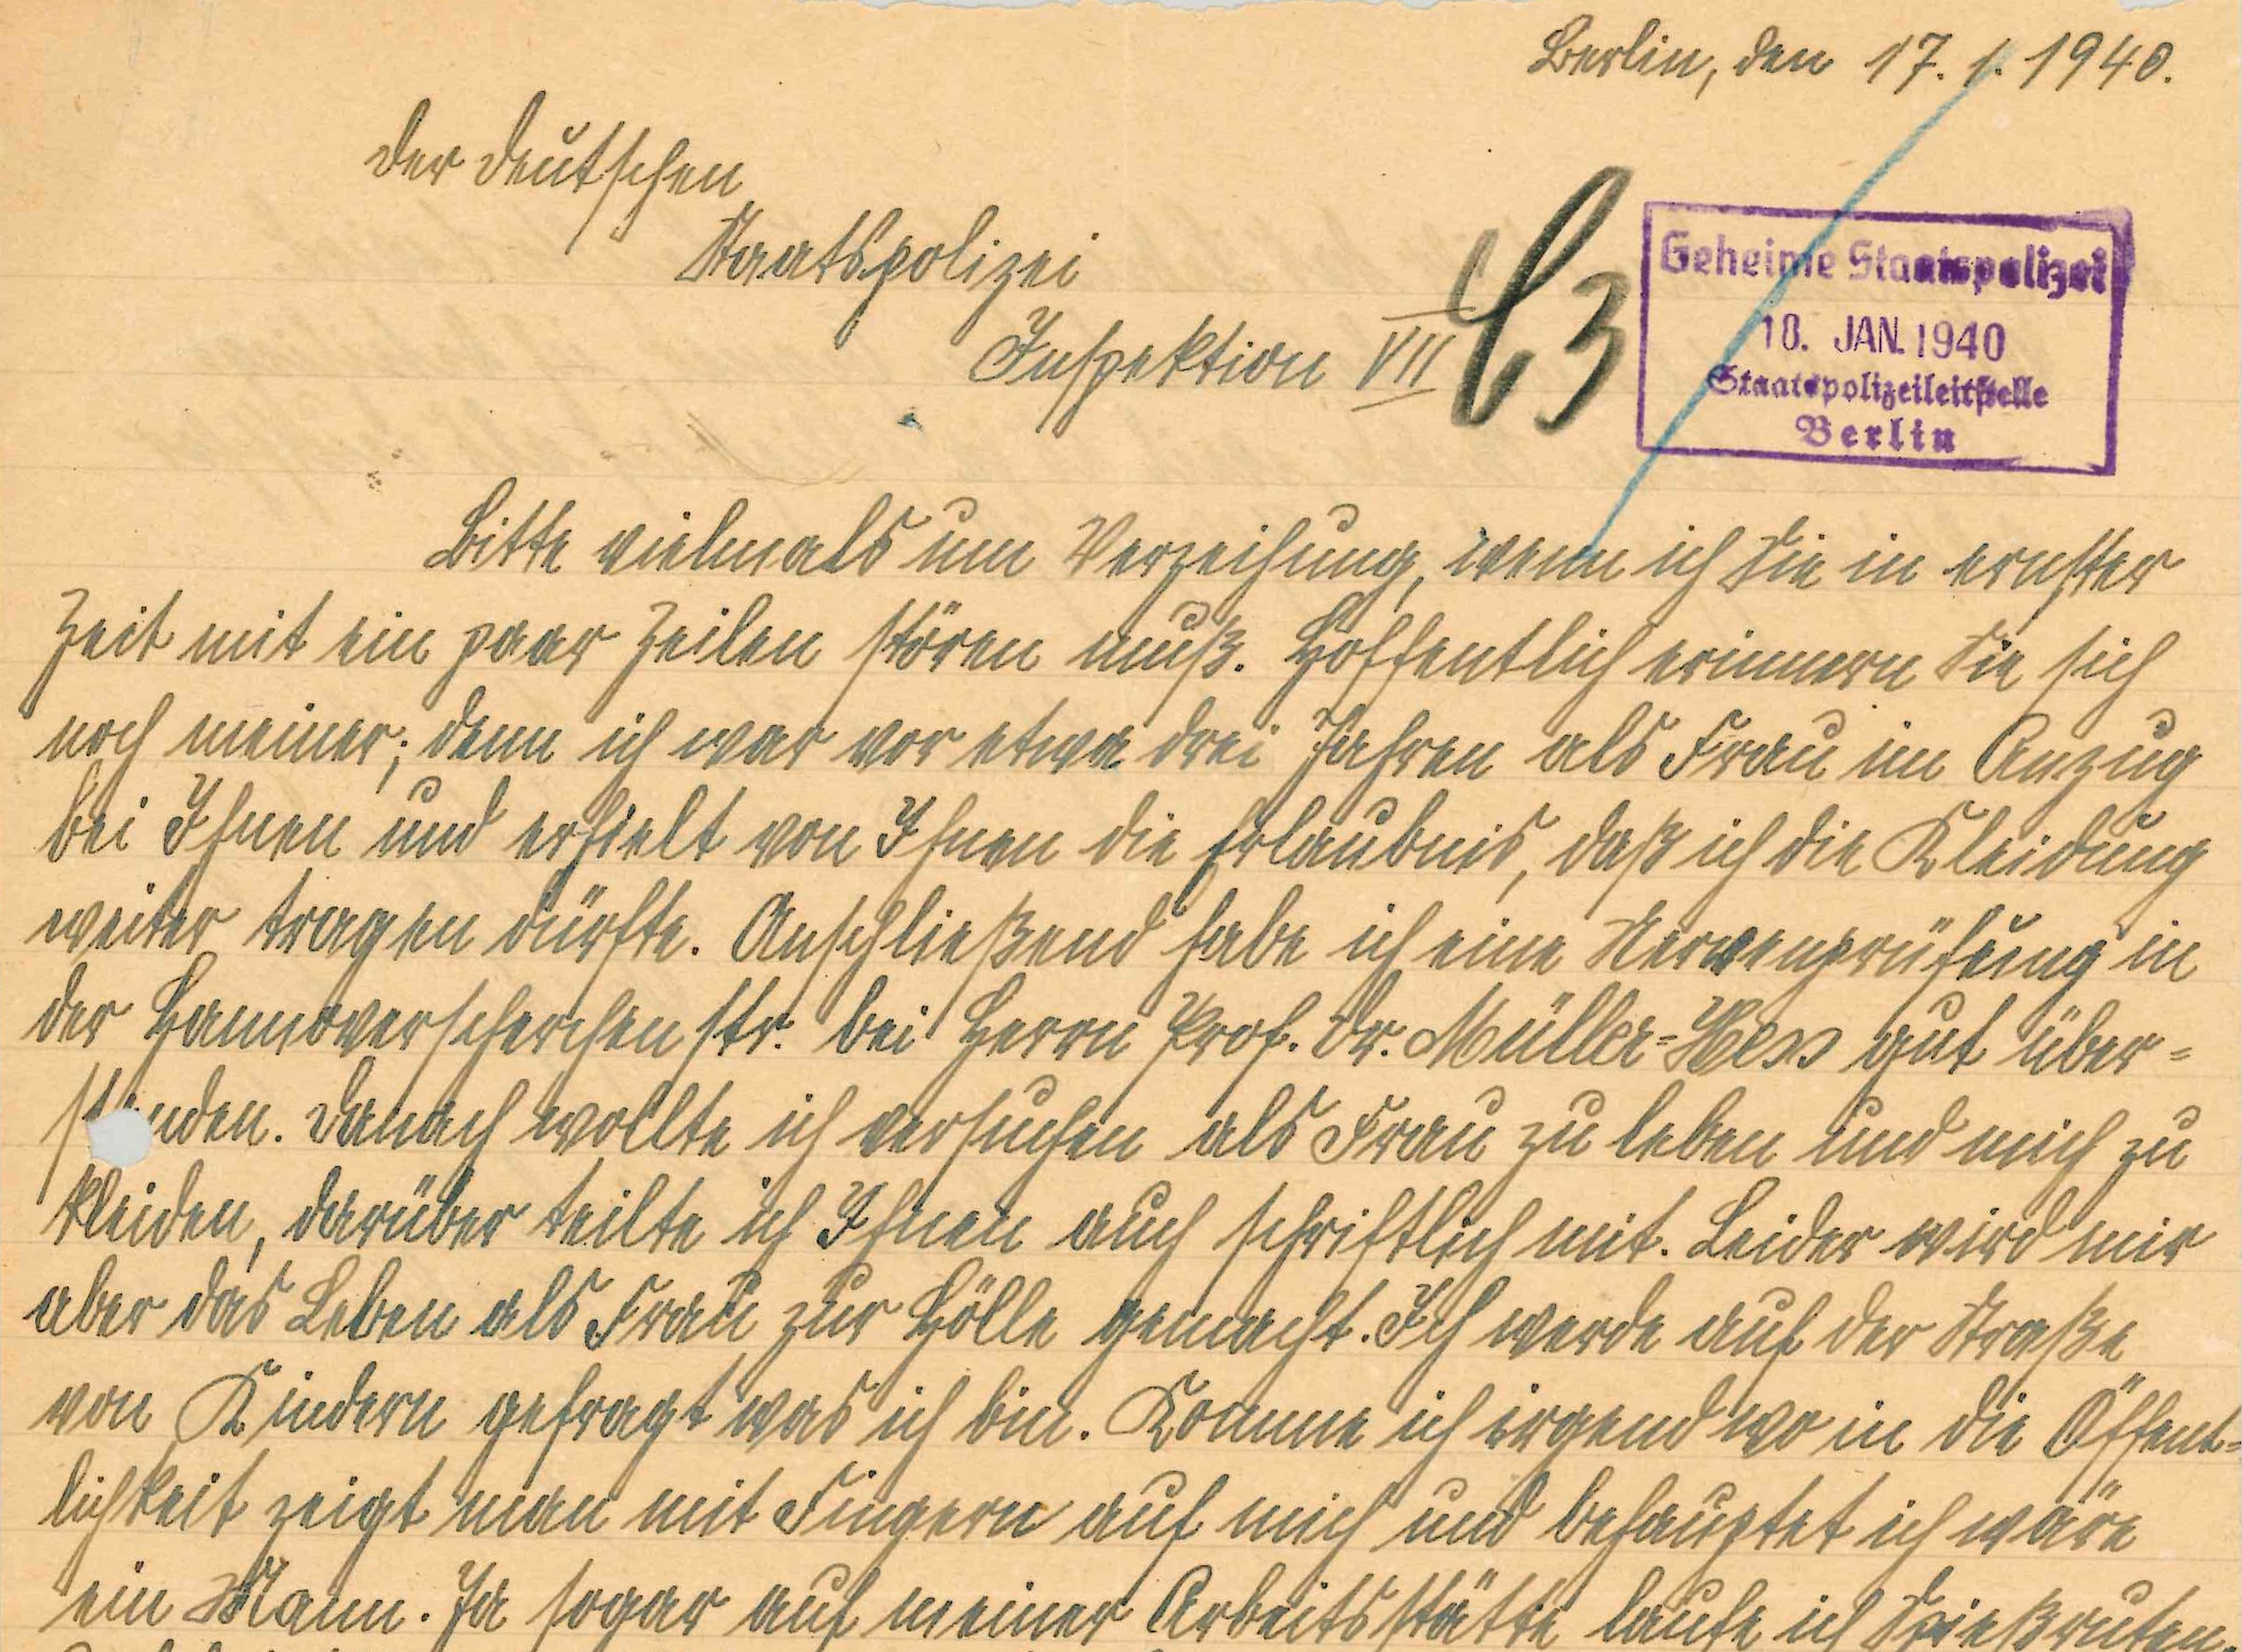 Berlin, den 17.1.1940.
Der Deutschen
Staatspolizei
Inspektion VII
C3
Geheime Staatspolizei
18. JAN. 1940
Staatspolizeileitstelle
Berlin
Bitte vielmals um Verzeihung, wenn ich Sie in ernster
Zeit mit ein paar Zeilen stören muß. Hoffentlich erinnern Sie sich
noch meiner; denn ich war vor etwa drei Jahren als Frau im Anzug
bei Ihnen und erhielt von Ihnen die Erlaubnis, daß ich die Kleidung
weiter tragen dürfte. Anschließend habe ich eine Nervenprüfung in
der Hannoverscherchenstr. bei Herrn Prof. Dr. Müller-Hess gut über=
standen. Danach wollte ich versuchen als Frau zu leben und mich zu
kleiden, darüber teilte ich Ihnen auch schriftlich mit. Leider wird mir
aber das Leben als Frau zur Hölle gemacht. Ich werde auf der Straße
von Kindern gefragt was ich bin. Komme ich irgend wo in die Öffent=
lichkeit zeigt man mit Fingern auf mich und behauptet ich wäre
ein Mann. Ja sogar auf meiner Arbeitsstätte laufe ich Spießruten.